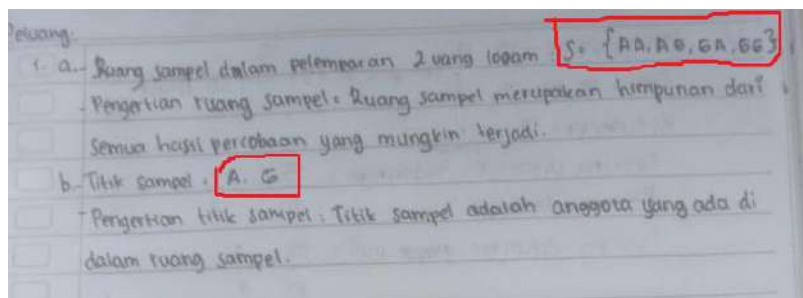 Peluang.
1. a. - Ruang sampel dalam pelemparan 2 uang logam : S = {AA, AG, GA, GG}
- Pengertian ruang sampel = Ruang sampel merupakan himpunan dari
semua hasil percobaan yang mungkin terjadi.
b. - Titik sampel : A. G
- Pengertian titik sampel : Titik sampel adalah anggota yang ada di
dalam ruang sampel.